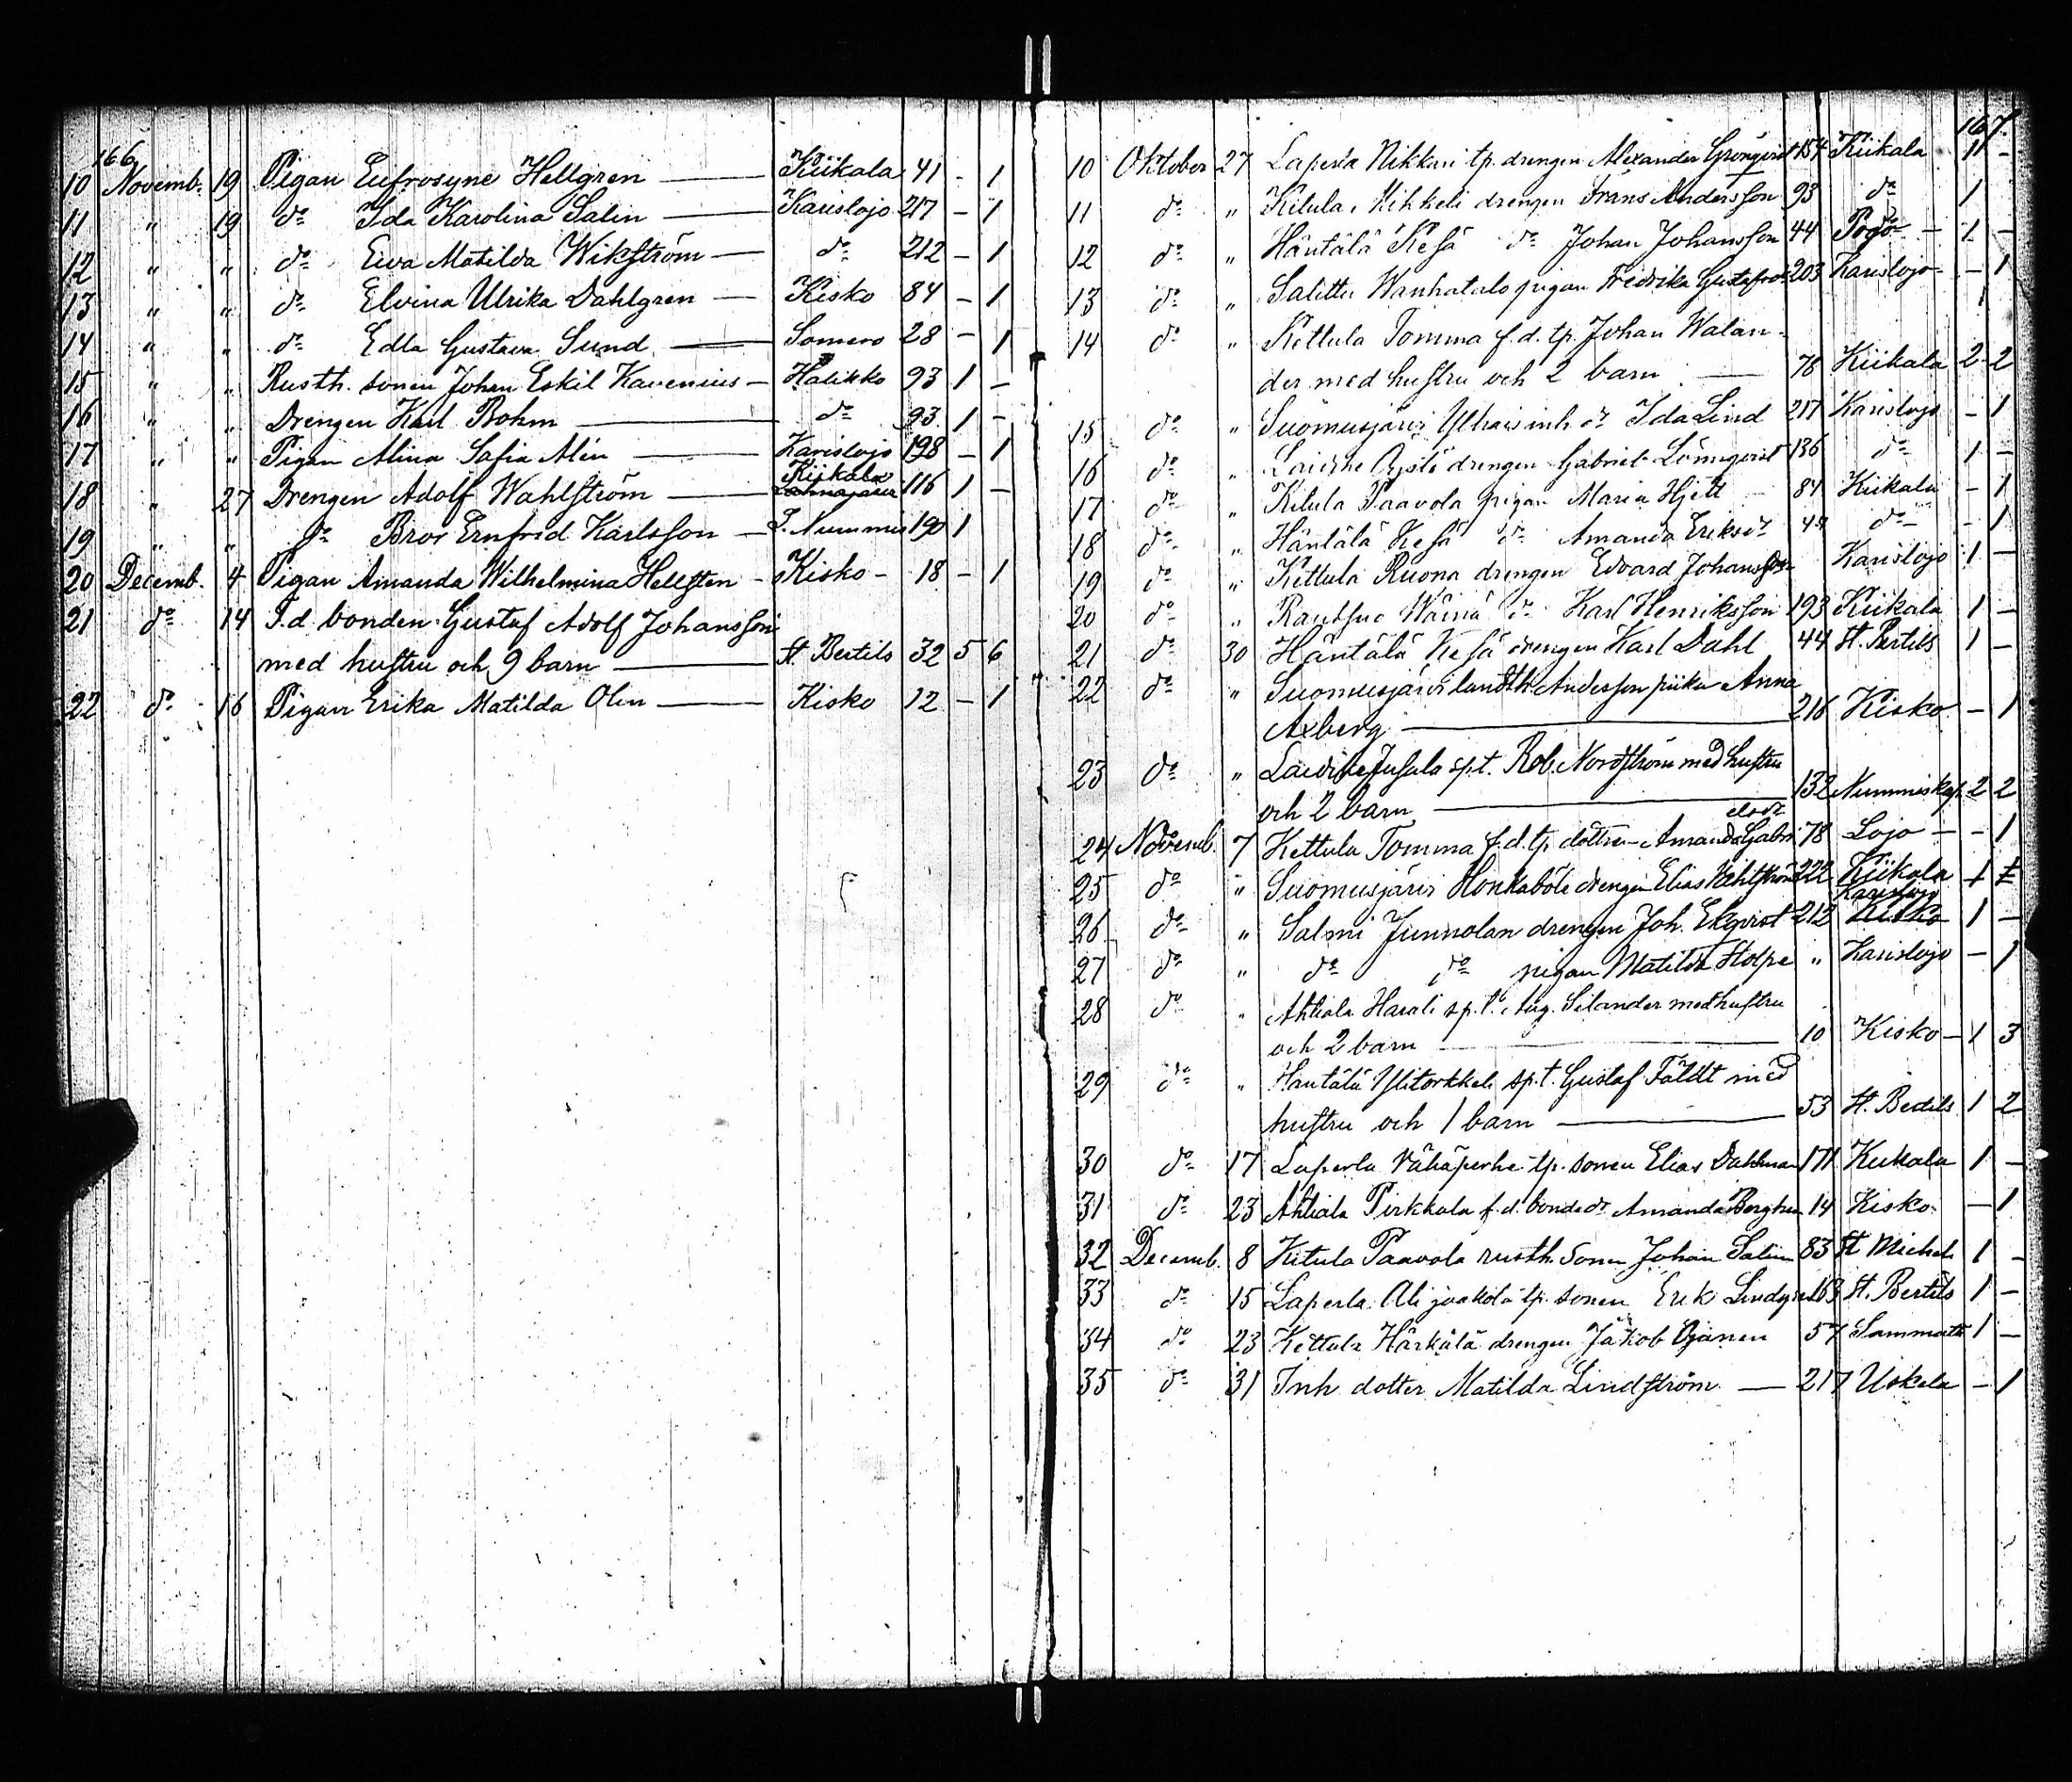 166
10 Novemb. 19 Pigan Eufrosyne Hellgren — Kiikala 41 - 1
11 " 19 do Ida Karolina Salin — Karislojo 217 - 1
12 " " do Ewa Matilda Wikström — do 212 - 1
13 " " do Elvina Ulrika Dahlgren — Kisko 84 - 1
14 " " do Edla Gustava Sund — Somero 28 - 1
15 " " Rusth. sonen Johan Eskil Kavenius — Halikko 93 1 -
16 " " Drengen Karl Bohm — do 93 1 -
17 " " Pigan Alina Sofia Alin — Karislojo 198 - 1
18 " 27 Drengen Adolf Wahlström — Kiikala 116 1 -
19 " " do Bror Ernfrid Karlsson — L. Nummis 190 1
20 Decemb. 4 Pigan Amanda Wilhelmina Hellsten - Kisko - 18 - 1
21 do 14 F.d. bonden Gustaf Adolf Johansson
med hustru och 9 barn — St. Bertils 32 5 6
22 do 16 Pigan Erika Matilda Olin — Kisko 12 - 1
167
10 Oktober 27 Laperla Nikkari tp. drengen Alexander Grönqvist 154 Kiikala 1 -
11 do " Kitula Mikkeli drengen Frans Andersson 93 do 1
12 do " Häntälä Kesä do Johan Johansson 44 Pojo - 1 -
13 do " Salittu Wanhatalo pigan Fredrika Gustafsdr 203 Karislojo - - 1
14 do " Kettula Tomma f.d. tp. Johan Walan-
der med hustru och 2 barn — 78 Kiikala 2 2
15 do " Suomusjärvi inh. dr Ida Lind 217 Karislojo - 1
16 do " Laidike drengen Gabriel Lönnqvist 136 do 1 -
17 do " Kitula Paavola pigan Maria Hjelt - 84 Kiikala - 1
18 do " Häntälä Kesä do Amanda Eriksdr 44 do - - 1
19 do " Kettula Ruona drengen Edvard Johansson Karislojo 1 -
20 do " Rautsuo Wäinä do Karl Henriksson 193 Kiikala 1 -
21 do 30 Häntälä Kesä drengen Karl Dahl 44 St. Bertils 1 -
22 do " Suomusjärvi landth. Andersson piika Anna
Axberg — 216 Kisko - 1
23 do " Laidike Jusala sp.t. Rob. Nordström med hustru
och 2 barn — 132 Nummis kap. 2 2
24 Novemb. 7 Kettula Tomma f.d. tp. dottren Amanda Gabri elsdr 78 Lojo - - 1
25 do " Suomusjärvi Honkaböle drengen Elias Wahlström 222 Kiikala 1
26 do " Salmi Junnolan drengen Joh. Ekqvist 212 Karislojo Kisko 1 -
27 do " do do pigan Matilda Stolpe " Karislojo - 1
28 do " Ahtiala Harali sp.t. Aug. Silander med hustru
och 2 barn — 10 Kisko - 1 3
29 do " Häntälä Ylitorkkeli sp.t. Gustaf Fäldt med
hustru och 1 barn — 53 St. Bertils 1 2
30 do 17 Laperla Vähäperhe tp. sonen Elias Dahlman 171 Kiikala 1 -
31 do 23 Ahtiala Pirkkala f.d. bonde dr Amanda Berghen 14 Kisko - 1
32 Decemb. 8 Kitula Paavola rusth. sonen Johan Salin 83 St Michels 1 -
33 do 15 Laperla Ali jaakola tp. sonen Erik Lindgren 163 St. Bertils 1 -
34 do 23 Kettula Härkälä drengen Jakob Ojanen 57 Sammatti 1 -
35 do 31 Inh. dotter Matilda Lindström — 217 Uskela - 1